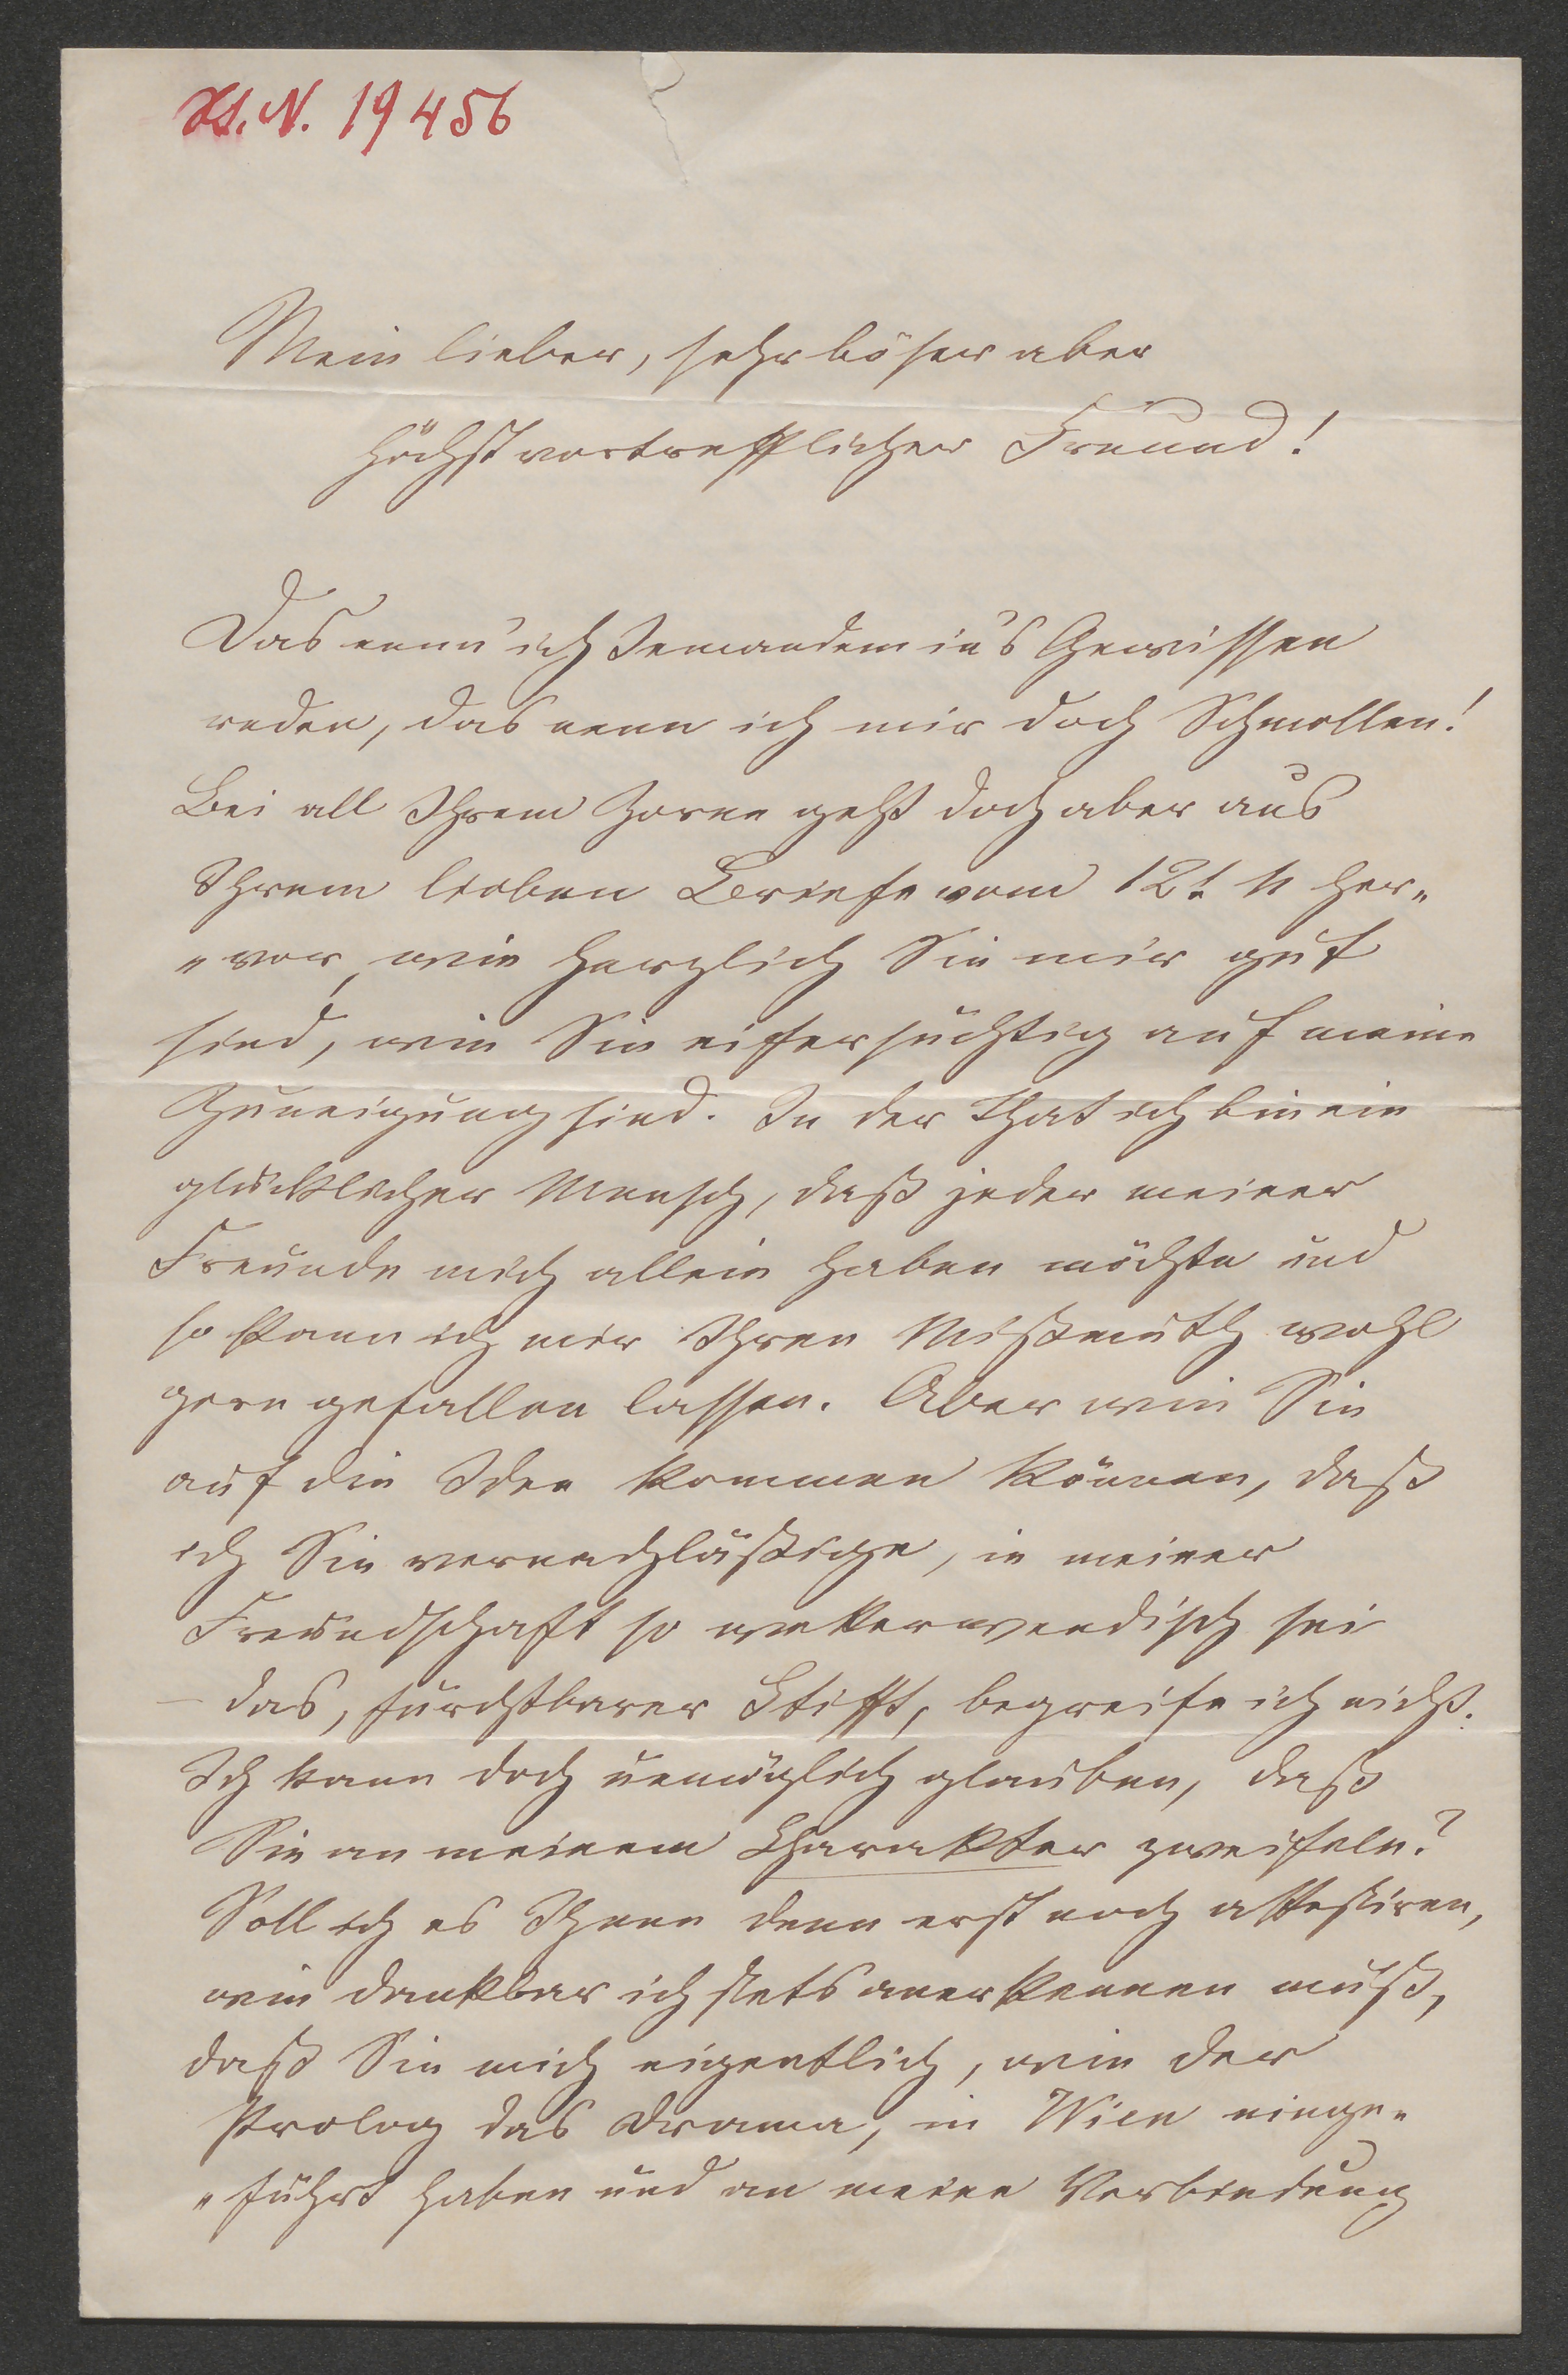 H.I.N. 19456
Mein lieber, sehr böser aber
höchst vortrefflicher Freund!
Das nenn' ich Jemandem in's Gewissen
reden, das nenn ich mir doch Schmollen!
Bei all Ihrem Zorne geht doch aber aus
Ihrem lieben Briefe vom 12t. 11 her„
„vor, wie herzlich Sie mir gut
sind, wie Sie eifersüchtig auf meine
Zuneigung sind. In der That ich bin ein
glücklicher Mensch, daß jeder meiner
Freunde mich allein haben möchte und
so kann ich mir Ihren Mißmuth wohl
gern gefallen lassen. Aber wie Sie
auf die Idee kommen können, daß
ich Sie vernachläßige, in meiner
Freundschaft so wetterwendisch sei
– das, furchtbarer Stifft, begreife ich nicht.
Ich kann doch unmöglich glauben, daß
Sie an meinem Charakter zweifeln?
Soll ich es Ihnen denn erst noch attestiren,
wie dankbar ich stets anerkennen muß,
daß Sie mich eigentlich, wie der
Prolog das Drama, in Wien einge„
„führt haben und an meine Verbindung